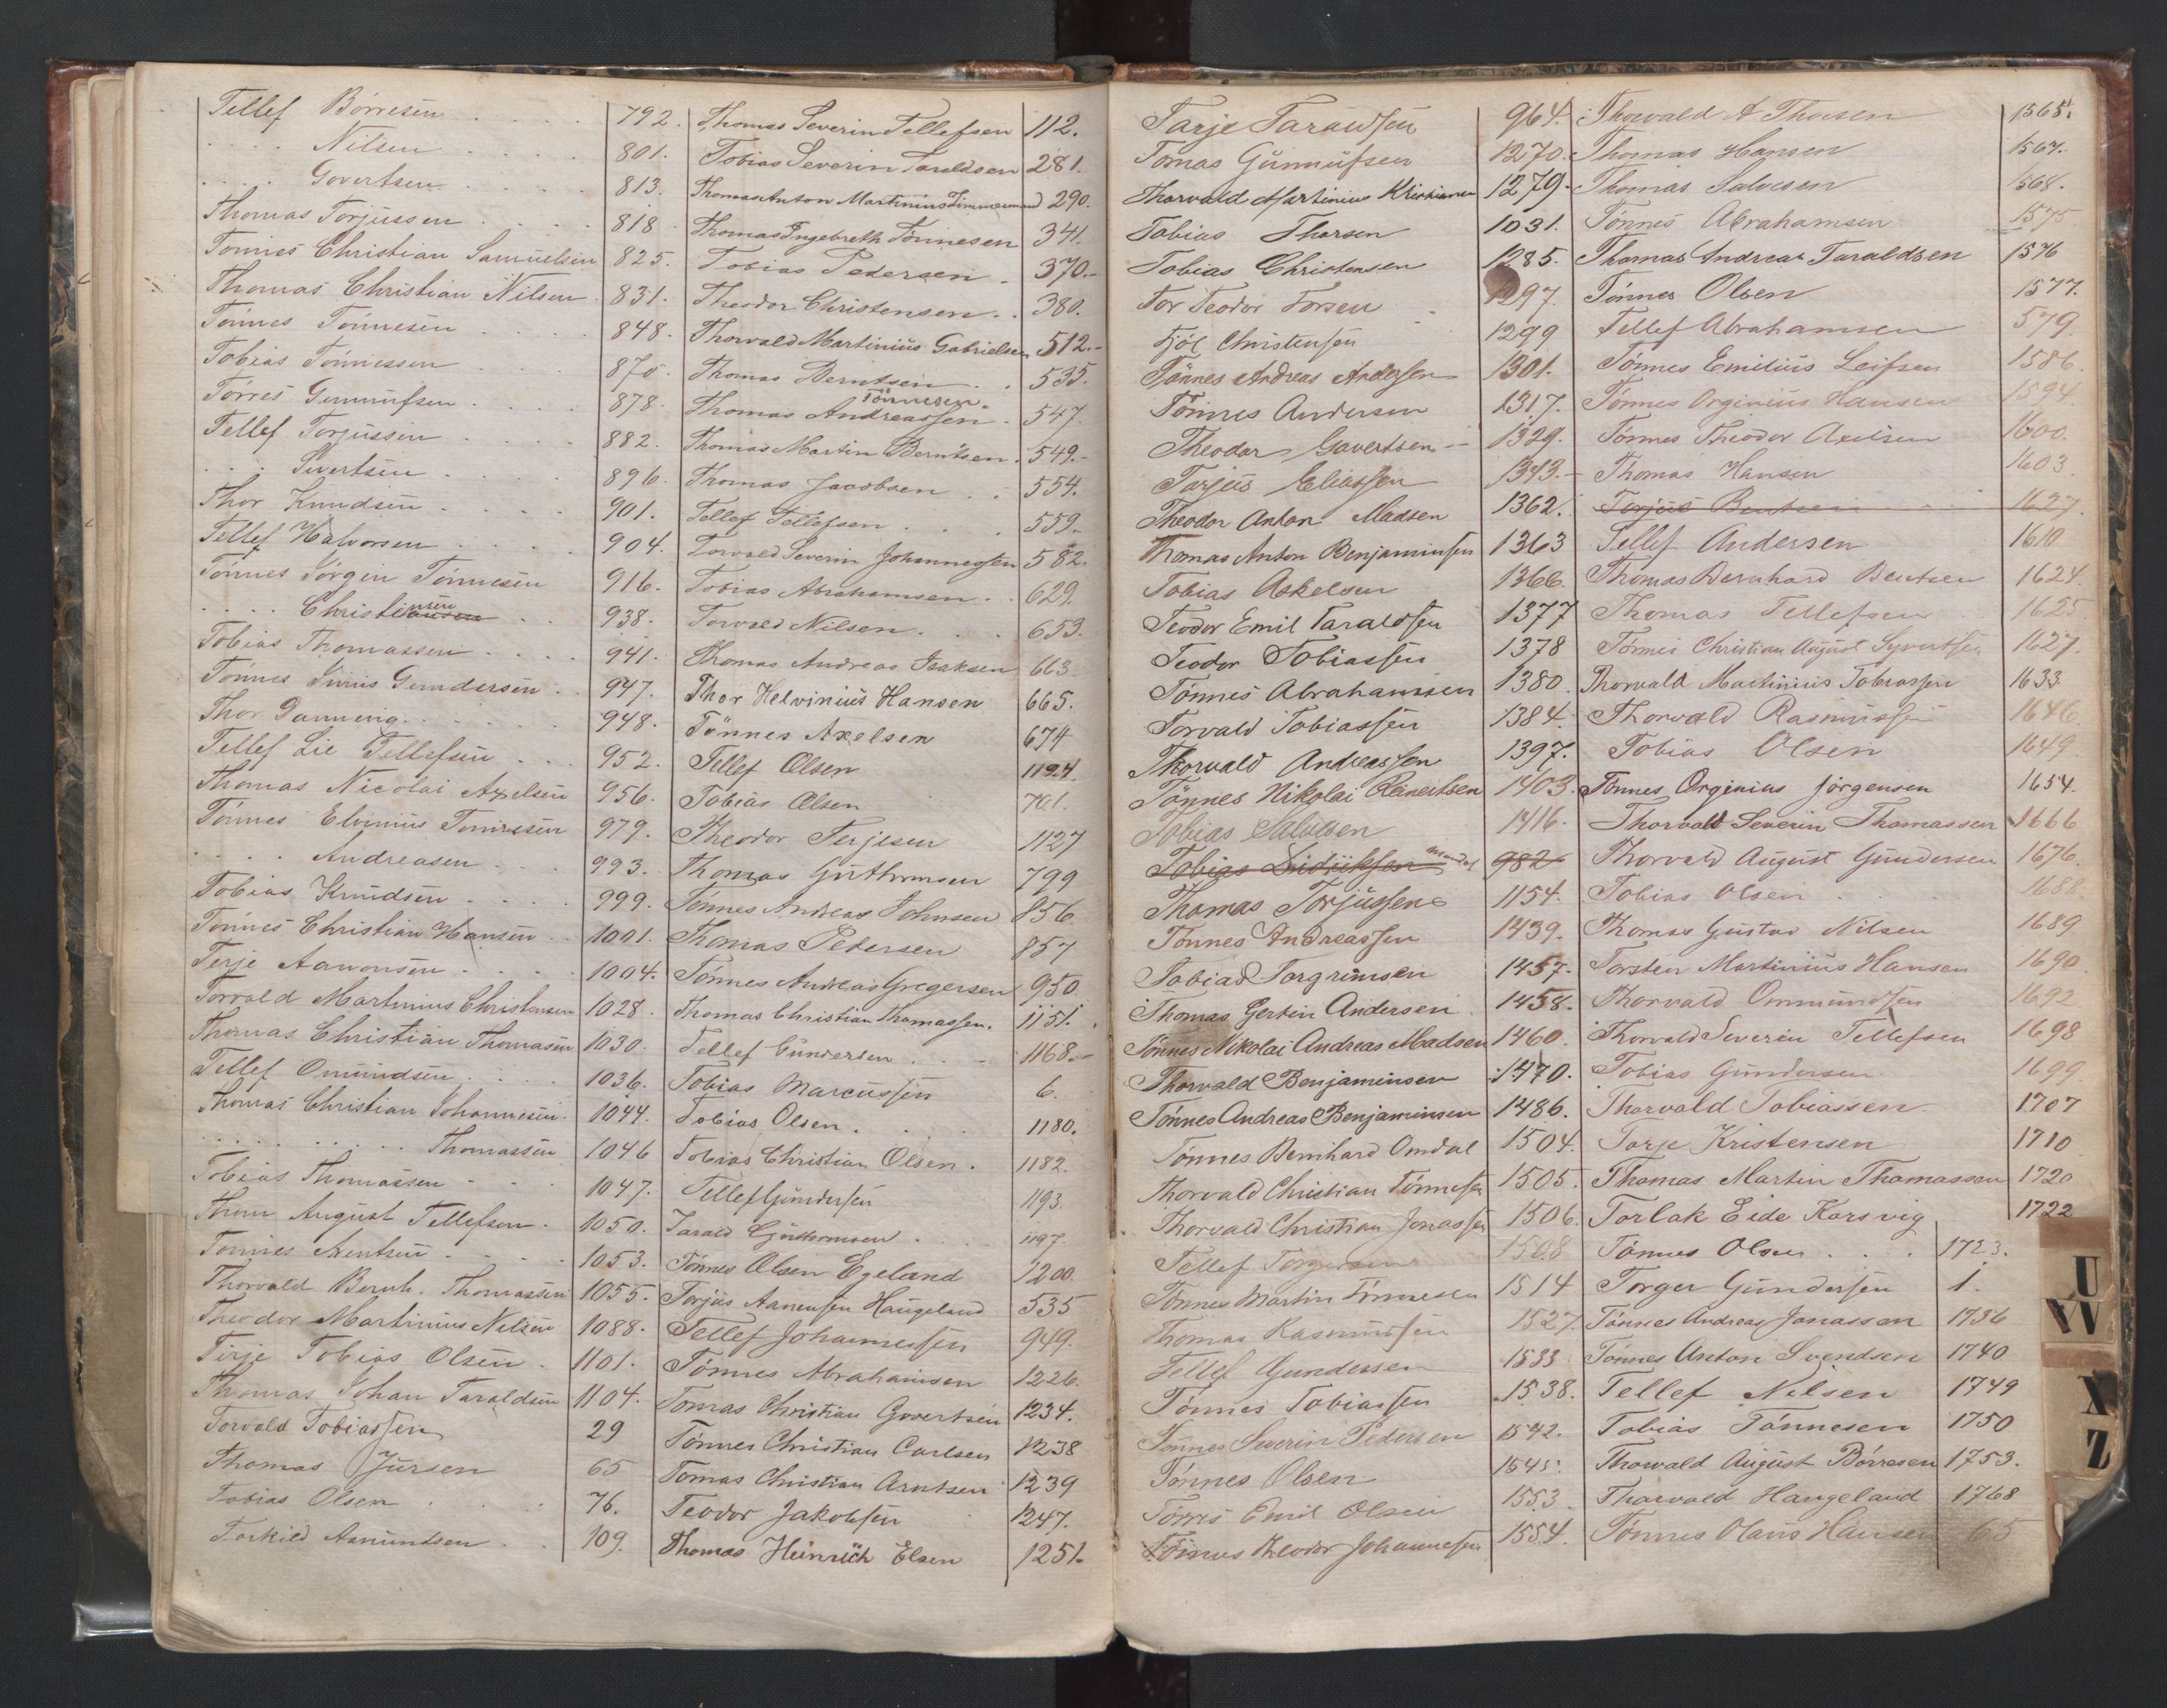 Tellef Börresen . . . . . 792.
. . . . Nilsen . . . . . 801.
. . . . Govertsen . . . . . 813.
Thomas Torjussen . . . . 818
Tönnes Christian Samuelsen 825.
Thomas Christian Nilsen . 831.
Tönnes Tönnesen . . . . 848.
Tobias Tönnessen . . . . 870.
Törres Gunnufsen . . . . 878.
Tellef Torjussen . . . . 882.
. . . Sivertsen . . . . 896.
Thor Knudsen . . . . . 901.
Tellef Halvorsen . . . . 904.
Tönnes Jörgin Tönnesen 916.
. . . . Christiansen . . 938.
Tobias Thomassen . . . . 941.
Tönnes Gundersen . . 947.
Thor Dannevig . . . . . 948.
Tellef Lie Tellefsen . . . 952.
Thomas Nicolai Axelsen 956.
Tönnes Elvinius Tönnesen 979.
. . . . Andreasen . . . 993.
Tobias Knudsen . . . . 999.
Tönnes Christian Hansen . . 1001.
Terje Aanonsen . . . . 1004.
Torvald Martinius Christensen 1028.
Thomas Christian Thomasen 1030.
Tellef Omundsen . . . . 1036.
Thomas Christian Johannesen . 1044.
. . . . . . . . . Thomassen 1046
Tobias Thomassen . . . 1047.
August Tellefsen . 1050.
Tönnes Arentsen . . . . 1053.
Thorvald Bernh. Thomassen 1055.
Theodor Martinius Nilsen 1088.
Terje Tobias Olsen . 1101.
Thomas Johan Taraldsen 1104.
Torvald Tobiassen 29
Thomas Jursen 65
Tobias Olsen . . . . 76.
Torkild Asmundsen . . 109.
Thomas Severin Tellefsen 112.
Tobias Severin Taraldsen 281.
Thomas Anton Martinius Zimmermand 290.
Thomas Ingebreth Tönnesen 341.
Tobias Pedersen . 370.-
Theodor Christensen . . 380.
Thorvald Martinius Gabrielsen 512.-
Thomas Berntsen . . 535.
Tönnesen.
Thomas Andreassen . 547.
Thomas Martin Berntsen . 549.-
Thomas Jacobsen . . 554.
Tellef Tellefsen . . . 559.
Torvald Severin Johannessen 582.
Tobias Abrahamsen . . 629.
Torvald Nilsen . . . 653.
Thomas Andreas Isaksen 663.
Thor Helvinius Hansen 665.
Tönnes Axelsen 674
Tellef Olsen 1124.
Tobias Olsen 701.
Theodor Terjesen 1127
Thomas Guthormsen 799
Tönnes Andreas Johnsen 856.
Thomas Pedersen 857
Tönnes Andreas Gregersen 950.
Thomas Christian Thomassen. 1151.
Tellef Gundersen . . . 1168.-
Tobias Marcussen 6.
Tobias Olsen . . . . 1180.
Tobias Christian Olsen . 1182.
Tellef Gundersen 1193.
Tarald Guthormsen . . . 1197.
Tönnes Olsen Egeland 1200.
Torjus Aanensen Haugeland 535
Tellef Johannessen 949.
Tönnes Abrahamsen 1226.
Tomas Christian Govertsen 1234.
Tönnes Christian Carlsen 1238
Tomas Christian Arntsen 1239
Teodor Jakobsen 1247.
Thomas Heinrich Elsen 1251.
Tarje Taraldsen 964.
Tomas Gunnufsen 1270.
Thorvald Martinius Kristiansen 1279.
Tobias Thorsen 1031.
Tobias Christensen 1285.
Tor Teodor Torsen 1297.
Christensen 1299
Tönnes Andreas Andersen 1301.
Tönnes Andersen 1317.
Theodor Govertsen -- 1329.
Torjus Eliassen 1343.-
Theodor Anton Madsen 1362.
Thomas Anton Benjaminsen 1363
Tobias Askelsen 1366.
Teodor Emil Taraldsen 1377
Teodor Tobiassen 1378
Tönnes Abrahamsen 1380.
Torvald Tobiassen 1384.
Thorvald Andreassen 1397.
Tönnes Nikolai Reinertsen 1403.
Tobias Salvesen 1416.
Tobias Didriksen 982
Thomas Torjussen 1154.
Tönnes Andreassen 1439.
Tobias Torgrimsen 1457.
Thomas Gertin Andersen . 1458.
Tönnes Nikolai Andreas Madsen 1460.
Thorvald Benjaminsen 1470.
Tönnes Andreas Benjaminsen 1486.
Tönnes Bernhard Omdal 1504.
Thorvald Christian Tönnesen 1505.
Thorvald Christian Jonassen 1506.
Tellef Torgersen 1508
Tönnes Martin Tönnesen 1514
Thomas Rasmussen 1527.
Tellef Gundersen 1533
Tönnes Tobiassen 1538.
Tönnes Severin Pedersen 1542.
Tönnes Olsen 1545.
Törres Emil Olsen 1553.
Tönnes Theodor Johannesen 1554.
Thorvald A Thorsen 1565.
Thomas Hansen 1567.
Thomas Salvesen 1568.
Tönnes Abrahamsen 1575
Thomas Andreas Taraldsen 1576
Tönnes Olsen 1577.
Tellef Abrahamsen 579.
Tönnes Emilius Leifsen 1586.
Tönnes Orginius Hansen 1594.
Tönnes Theodor Axelsen 1600.
Thomas Hansen 1603.
Torjus Bentsen 1627.
Tellef Andersen 1610
Thomas Bernhard Bentsen 1624.
Thomas Tellefsen 1625
Tönnes Christian August Syvertsen 1627.
Thorvald Martinius Tobiassen 1633.
Thorvald Rasmussen 1646.
Tobias Olsen 1649.
Tönnes Orginius Jörgensen 1654.
Thorvald Severin Thomassen 1666
Thorvald August Gundersen 1676.
Tobias Olsen . . . 1688.
Thomas Gustav Nilsen 1689.
Torsten Martinius Hansen 1690.
Thorvald Ommundsen 1692
Thorvald Severin Tellefsen 1698
Tobias Gundersen 1699
Thorvald Tobiassen. 1707
Tarje Kristensen 1710
Thomas Martin Thomassen 1720
Torlak Eide Korsvig 1722
Tönnes Olsen . . . 1723.
Torger Gundersen 1.
Tönnes Andreas Jonassen 1736
Tönnes Anton Svendsen 1740
Tellef Nilsen 1749
Tobias Tönnesen 1750
Thorvald August Börresen 1753.
Thorvald Haugeland 1768
Tönnes Olaus Hansen 65
U
VW
X
Z